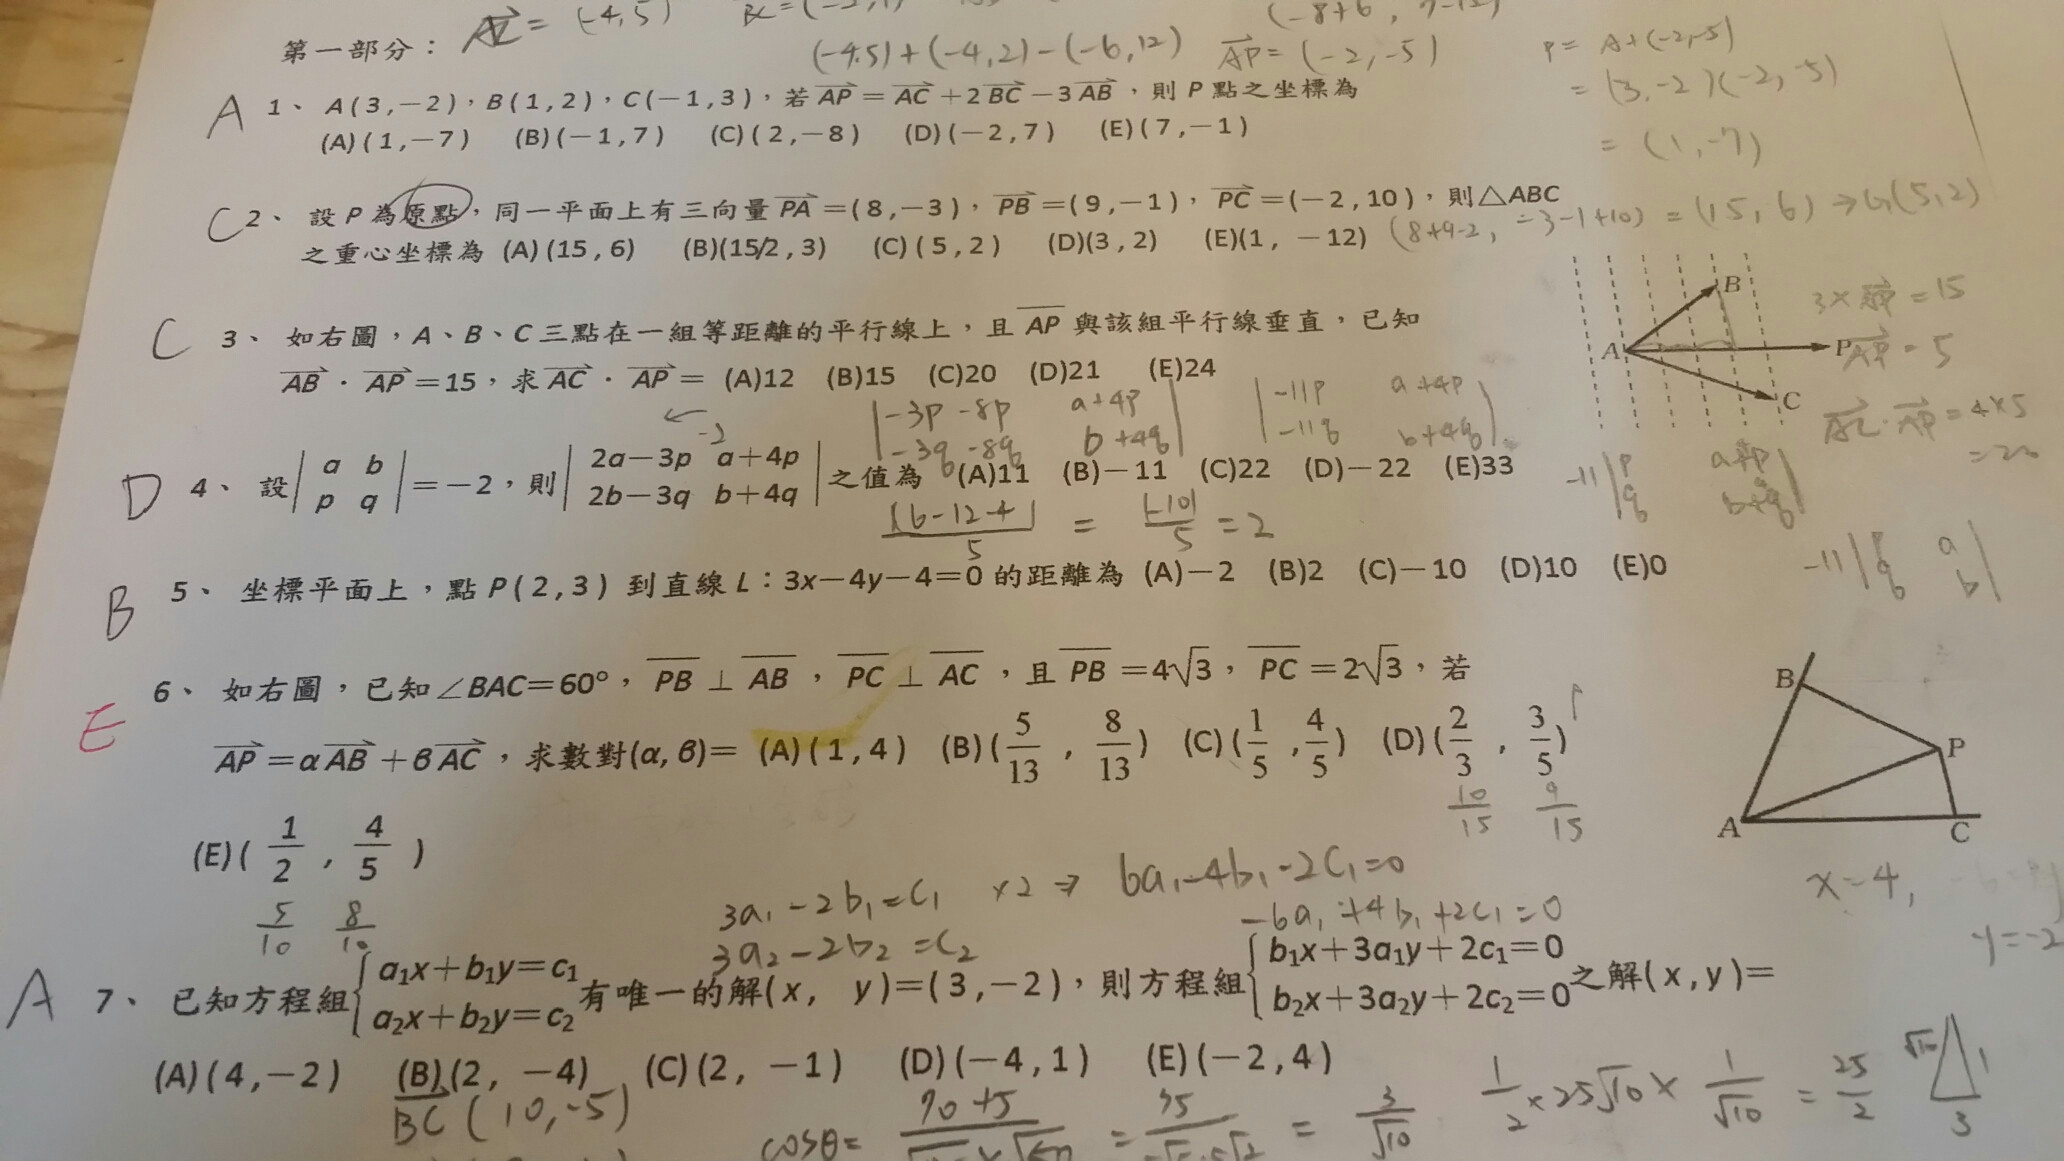 第一部分： AC = (-4,5) BC=(-2,1)
(-4.5)+(-4,2)-(-6,12) AP=(-2,-5) P= A+(-2,-5)
= (3,-2)(-2,-5)
= (1,-7)
A 1、 A(3,-2)，B(1,2)，C(-1,3)，若 AP = AC +2 BC -3 AB ，則 P 點之坐標為
(A)(1,-7) (B)(-1,7) (C)(2,-8) (D)(-2,7) (E)(7,-1)
C 2、 設 P 為原點，同一平面上有三向量 PA =(8,-3)，PB =(9,-1)，PC =(-2,10)，則△ABC
之重心坐標為 (A)(15,6) (B)(15/2,3) (C)(5,2) (D)(3,2) (E)(1, -12) (8+9-2, -3-1+10) = (15,6) → G(5,2)
C 3、 如右圖，A、B、C 三點在一組等距離的平行線上，且 AP 與該組平行線垂直，已知
AB · AP =15，求 AC · AP = (A)12 (B)15 (C)20 (D)21 (E)24
B
A P
C
3× AP = 15
AP = 5
AC · AP = 4×5
= 20
-3p -8p a+4p
-3q -8q b+4q
-11p a+4p
-11q b+4q
D 4、 設 | a b | =-2，則 | 2a-3p a+4p | 之值為 (A)11 (B)-11 (C)22 (D)-22 (E)33
| p q | | 2b-3q b+4q |
-11 | p a+4p |
| q b+4q |
-11 | p a |
| q b |
|6-12-4| / 5 = |-10| / 5 = 2
B 5、 坐標平面上，點 P(2,3) 到直線 L：3x-4y-4=0 的距離為 (A)-2 (B)2 (C)-10 (D)10 (E)0
E 6、 如右圖，已知∠BAC=60°，PB ⊥ AB ，PC ⊥ AC ，且 PB =4√3，PC =2√3，若
AP =αAB +βAC ，求數對(α,β)= (A)(1,4) (B)(5/13 , 8/13) (C)(1/5 ,4/5) (D)(2/3 , 3/5)
10/15 9/15
(E)(1/2 , 4/5)
5/10 8/10
B
P
A C
x=4,
y=-2
3a₁-2b₁=c₁ ×2 ⇒ 6a₁-4b₁-2c₁=0
3a₂-2b₂=c₂ -6a₁+4b₁+2c₁=0
A 7、 已知方程組{ a₁x+b₁y=c₁ a₂x+b₂y=c₂ 有唯一的解(x, y)=(3,-2)，則方程組{ b₁x+3a₁y+2c₁=0 b₂x+3a₂y+2c₂=0 之解(x,y)=
(A)(4,-2) (B)(2, -4) (C)(2, -1) (D)(-4,1) (E)(-2,4)
BC (10,-5)
cosθ= = 3/√10
1/2 ×25√10 × 1/√10 = 25/2
√10 1
3